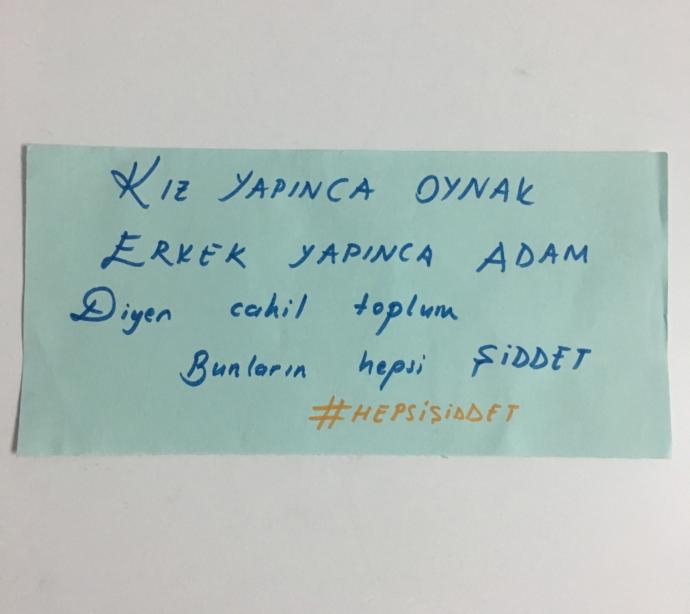 KIZ YAPINCA OYNAK
ERKEK YAPINCA ADAM
Diyen cahil toplum
Bunların hepsi ŞİDDET
#HEPSİŞİDDET